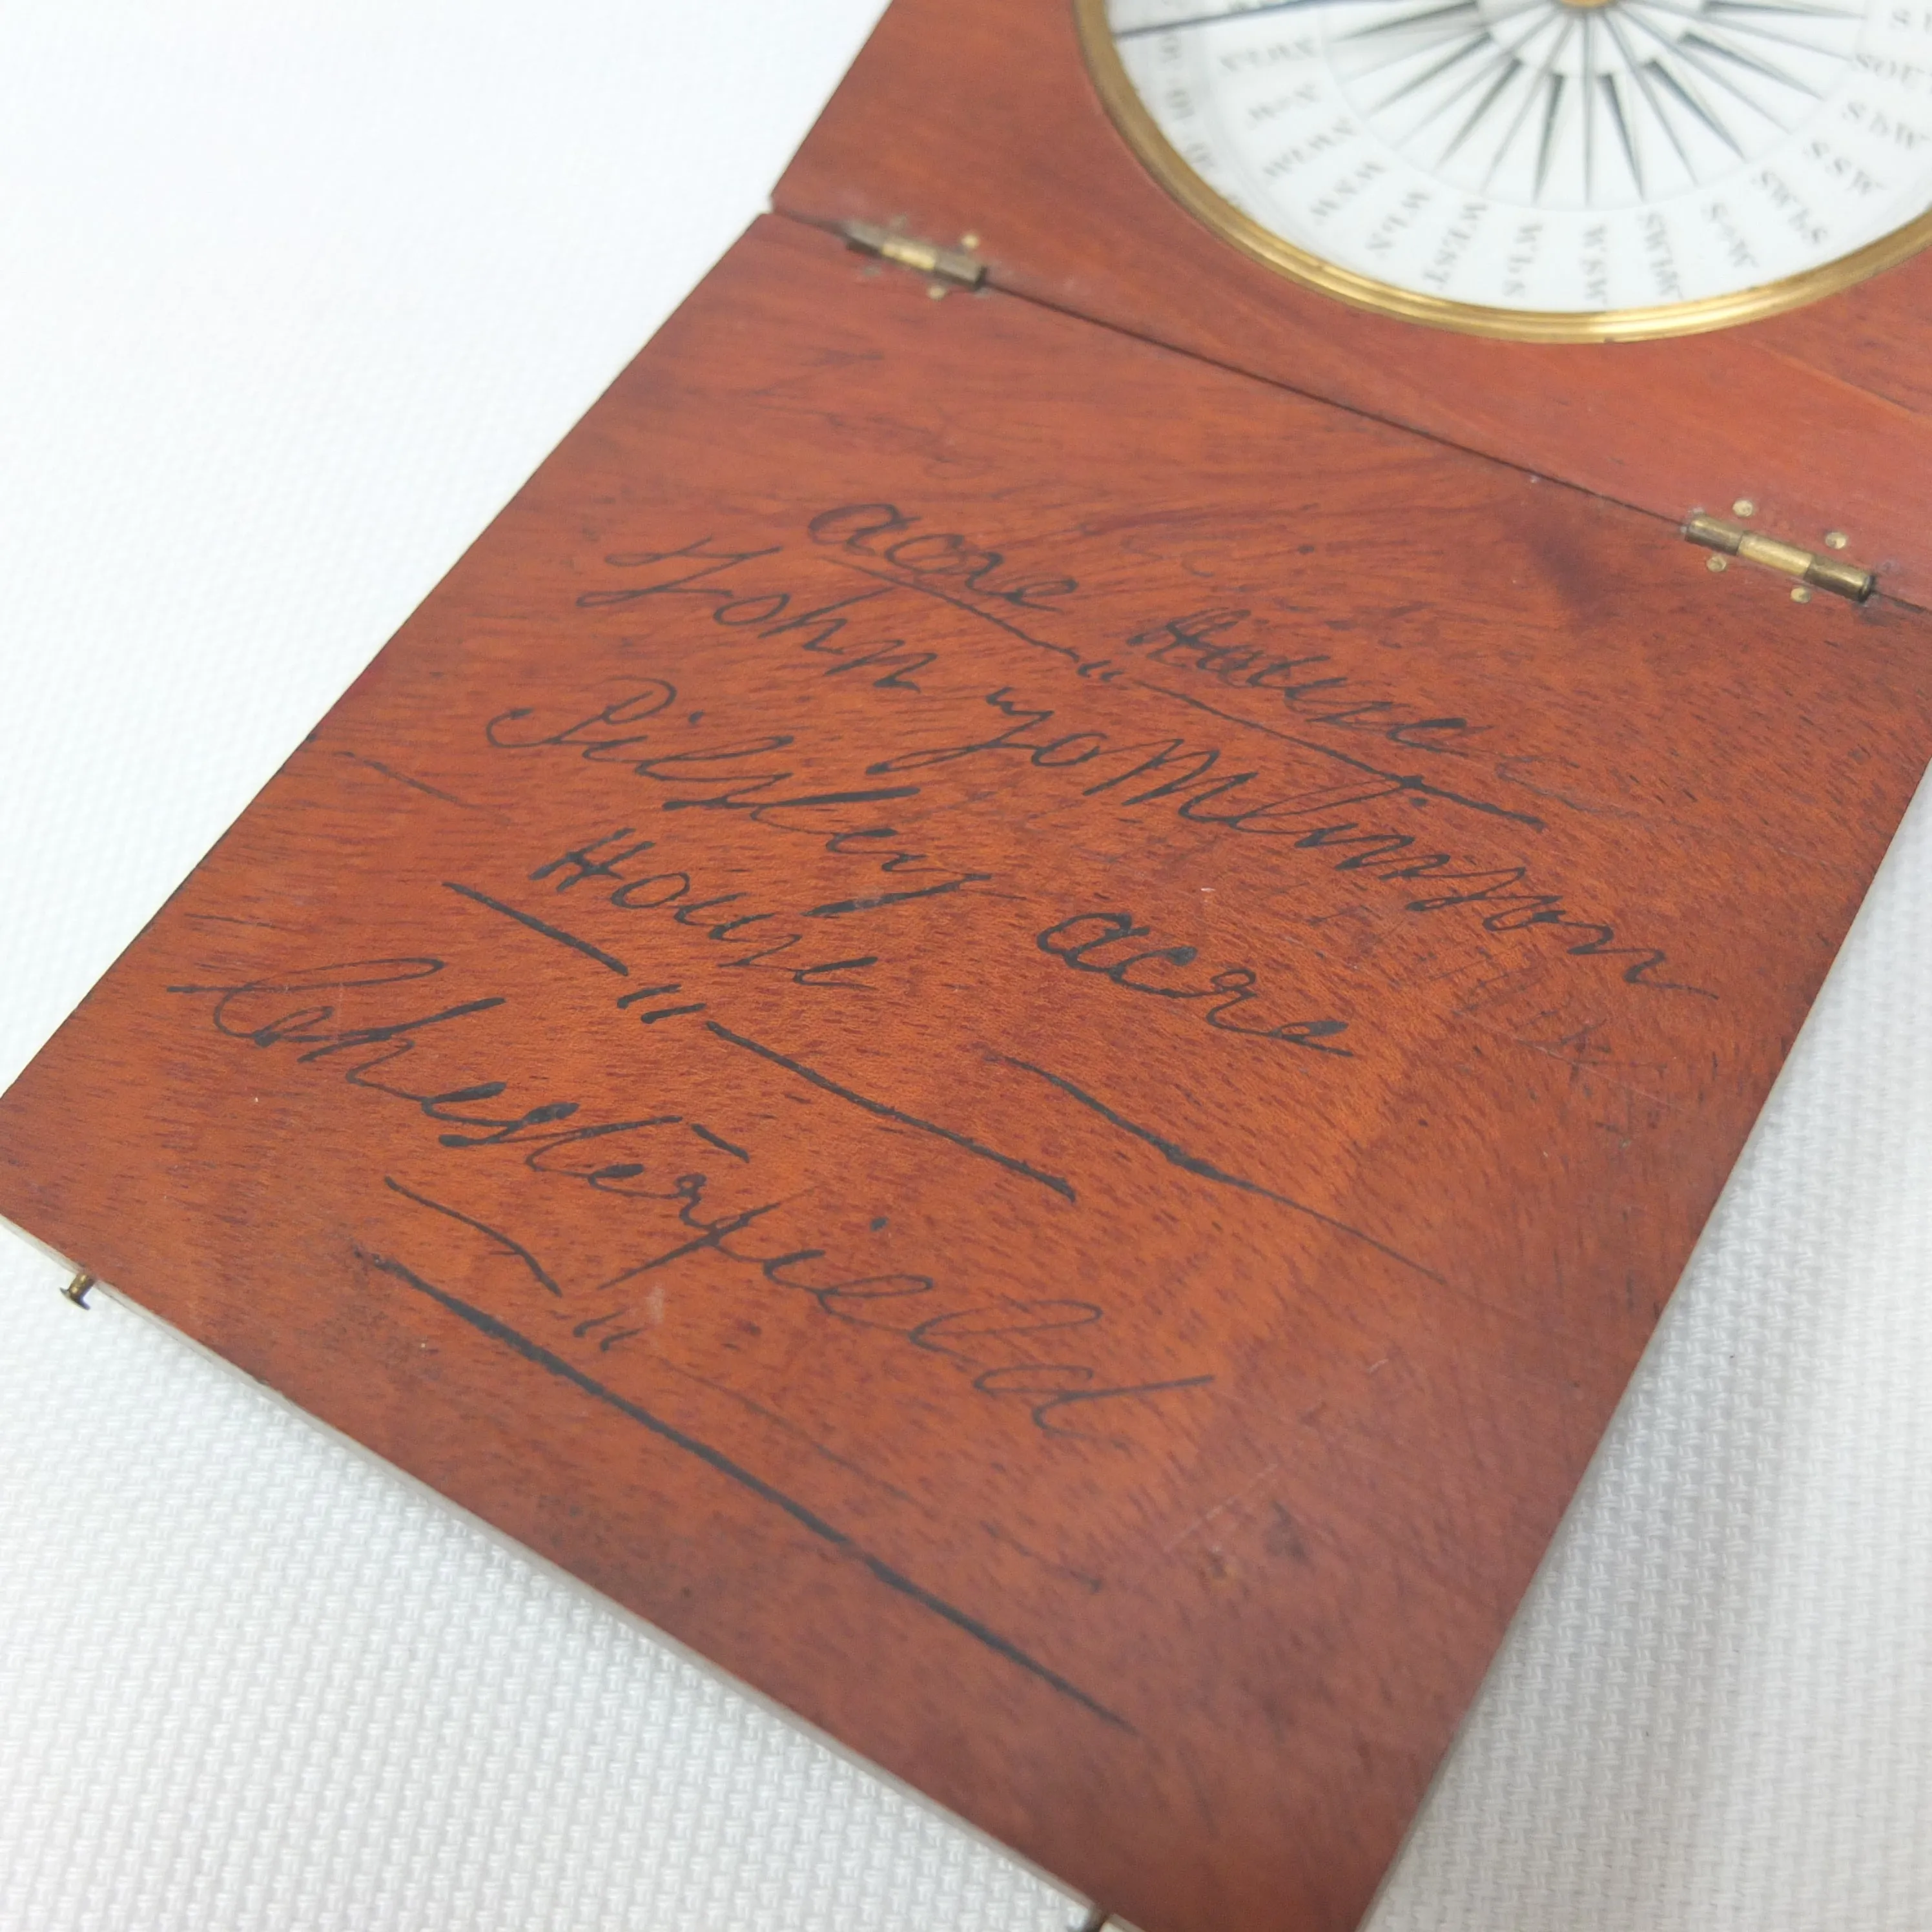 NWbN
NoW
NWbW
WNW
WbN
WEST
WbS
WSW
SWbW
SoW
SWbS
SSW
SbW
SOU
acre House
"
John Tomlinson
Pilsley acre
House
"
Chesterfield
"